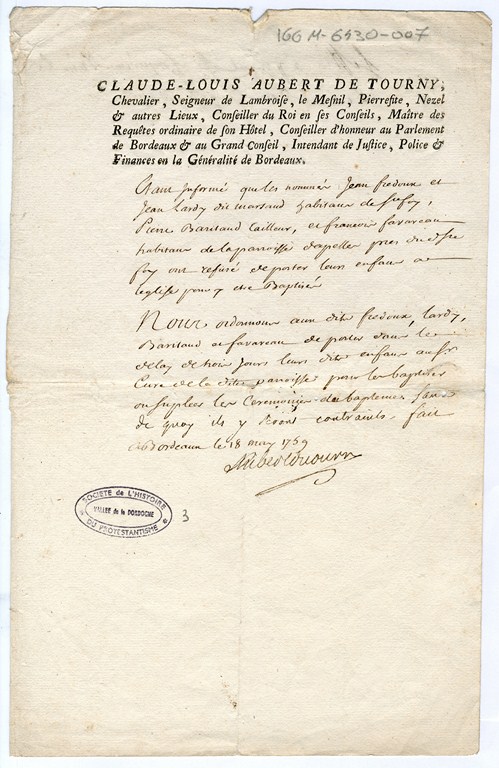 166 M-6530-007
CLAUDE-LOUIS AUBERT DE TOURNY,
Chevalier, Seigneur de Lambroise, le Mesnil, Pierrefite, Nezel
& autres Lieux, Conseiller du Roi en ses Conseils, Maître des
Requêtes ordinaire de son Hôtel, Conseiller d'honneur au Parlement
de Bordeaux & au Grand Conseil, Intendant de Justice, Police &
Finances en la Généralité de Bordeaux.
Etant Informé que les nommés Jean fredoux et
Jean Lardy dit marsaud habitans de st foy,
Pierre Baritaud tailleur, et francois favareau
habitans de la parroisse dappelles pres du d. ste
foy ont refusé de porter leurs enfans a
leglise pour y etre Baptisés
Nous ordonnons aux dits fredoux, lardy,
Baritaud et favareau de porter dans le
delay de trois jours leurs dits enfans au sr
Curé de la dite parroisse pour les baptiser
ou suplées les Ceremonies de baptemes sans
de quoy ils y seront contraints. fait
a Bordeaux le 18 may 1759
Aubert de Tourny
SOCIETE de L'HISTOIRE
VALLEE de la DORDOGNE
DU PROTESTANTISME
3